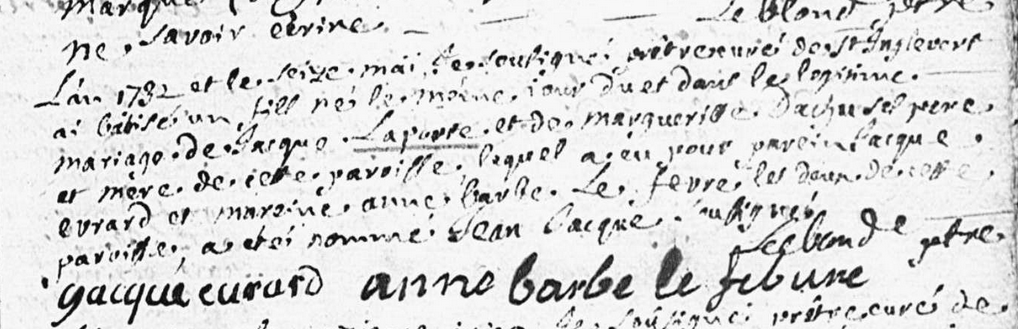 marque Le blond ptre
ne savoir ecrire.
L'an 1732 et le seize mai je soussigné prêtre curé de St Inglevert
ai batisé un fils né le même jour du et dans le legitime
mariage de Jacque Laporte et de margueritte Dachu ses pere
et mere de cette paroisse, lequel a eu pour parein Jacque
evrard et marine anne barbe Le fevre les deux de cette
paroisse, a etei nommé Jean Jacque. soussignés
Leblond ptre
Jacque eurard anne barbe le febure
soussigné prêtre curé de